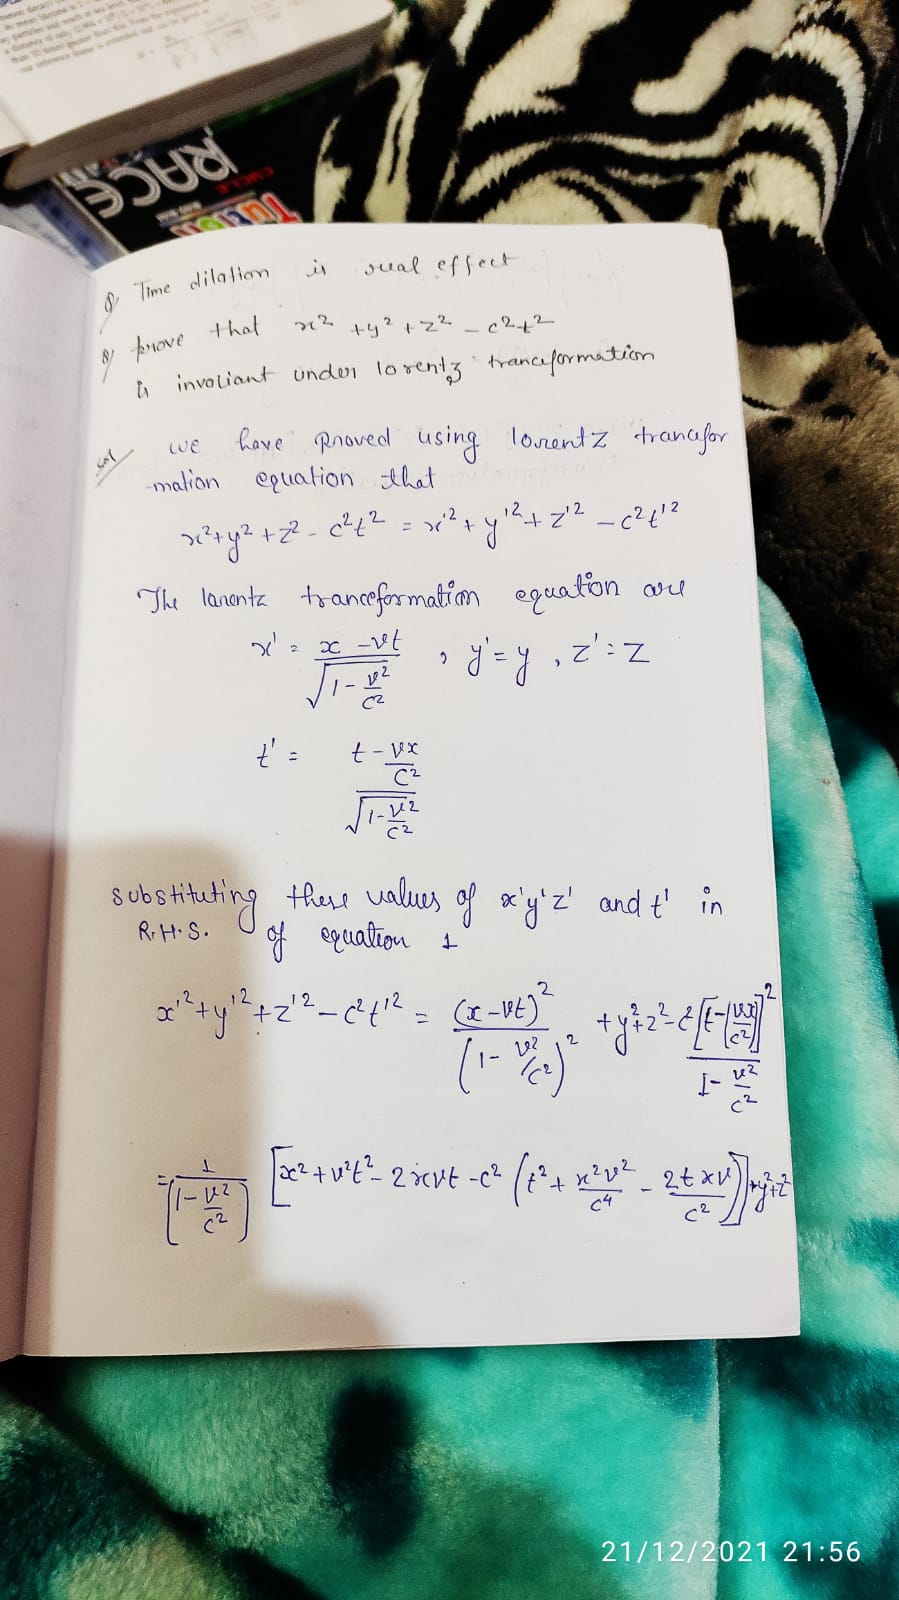 RACE
CIRCLE
Tution
Q/ Time dilation is real effect
Q/ prove that x² + y² + z² - c²t²
is invariant under lorentz tranceformation
Sol we have proved using lorentz trancefor
-mation equation that
x²+y²+z²- c²t² = x'²+ y'²+ z'² - c²t'²
The lorentz tranceformation equation are
x' = x - vt / √1 - v²/c² , y' = y , z' = z
t' = t - vx/c² / √1 - v²/c²
substituting these values of x'y'z' and t' in
R.H.S. of equation 1
x'²+y'²+z'²-c²t'² = (x-vt)² / (1- v²/c²)² + y²+z²-c²[t-(vx/c²)]² / 1- v²/c²
= 1/[1-v²/c²] [x²+v²t²-2xvt -c² (t²+ x²v²/c⁴ - 2txv/c²)]+y²+z²
21/12/2021 21:56